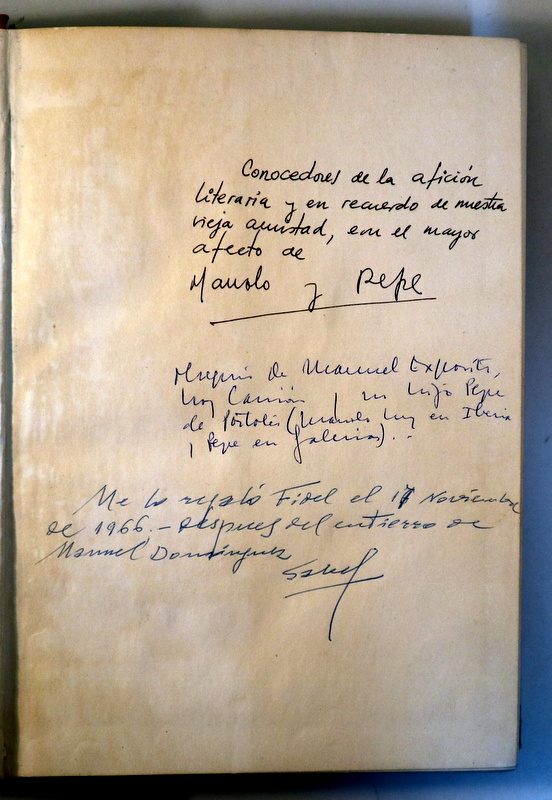 Conocedores de la afición
literaria y en recuerdo de nuestra
vieja amistad, con el mayor
afecto de
Manolo y Pepe
de Manuel Exposito,
hoy Carrión y su hijo Pepe
de Póstoles (Manolo hoy en Iberia
y Pepe en Galerias).-
Me lo regaló Fidel el 17 Noviembre
de 1966.- despues del entierro de
Manuel Domínguez